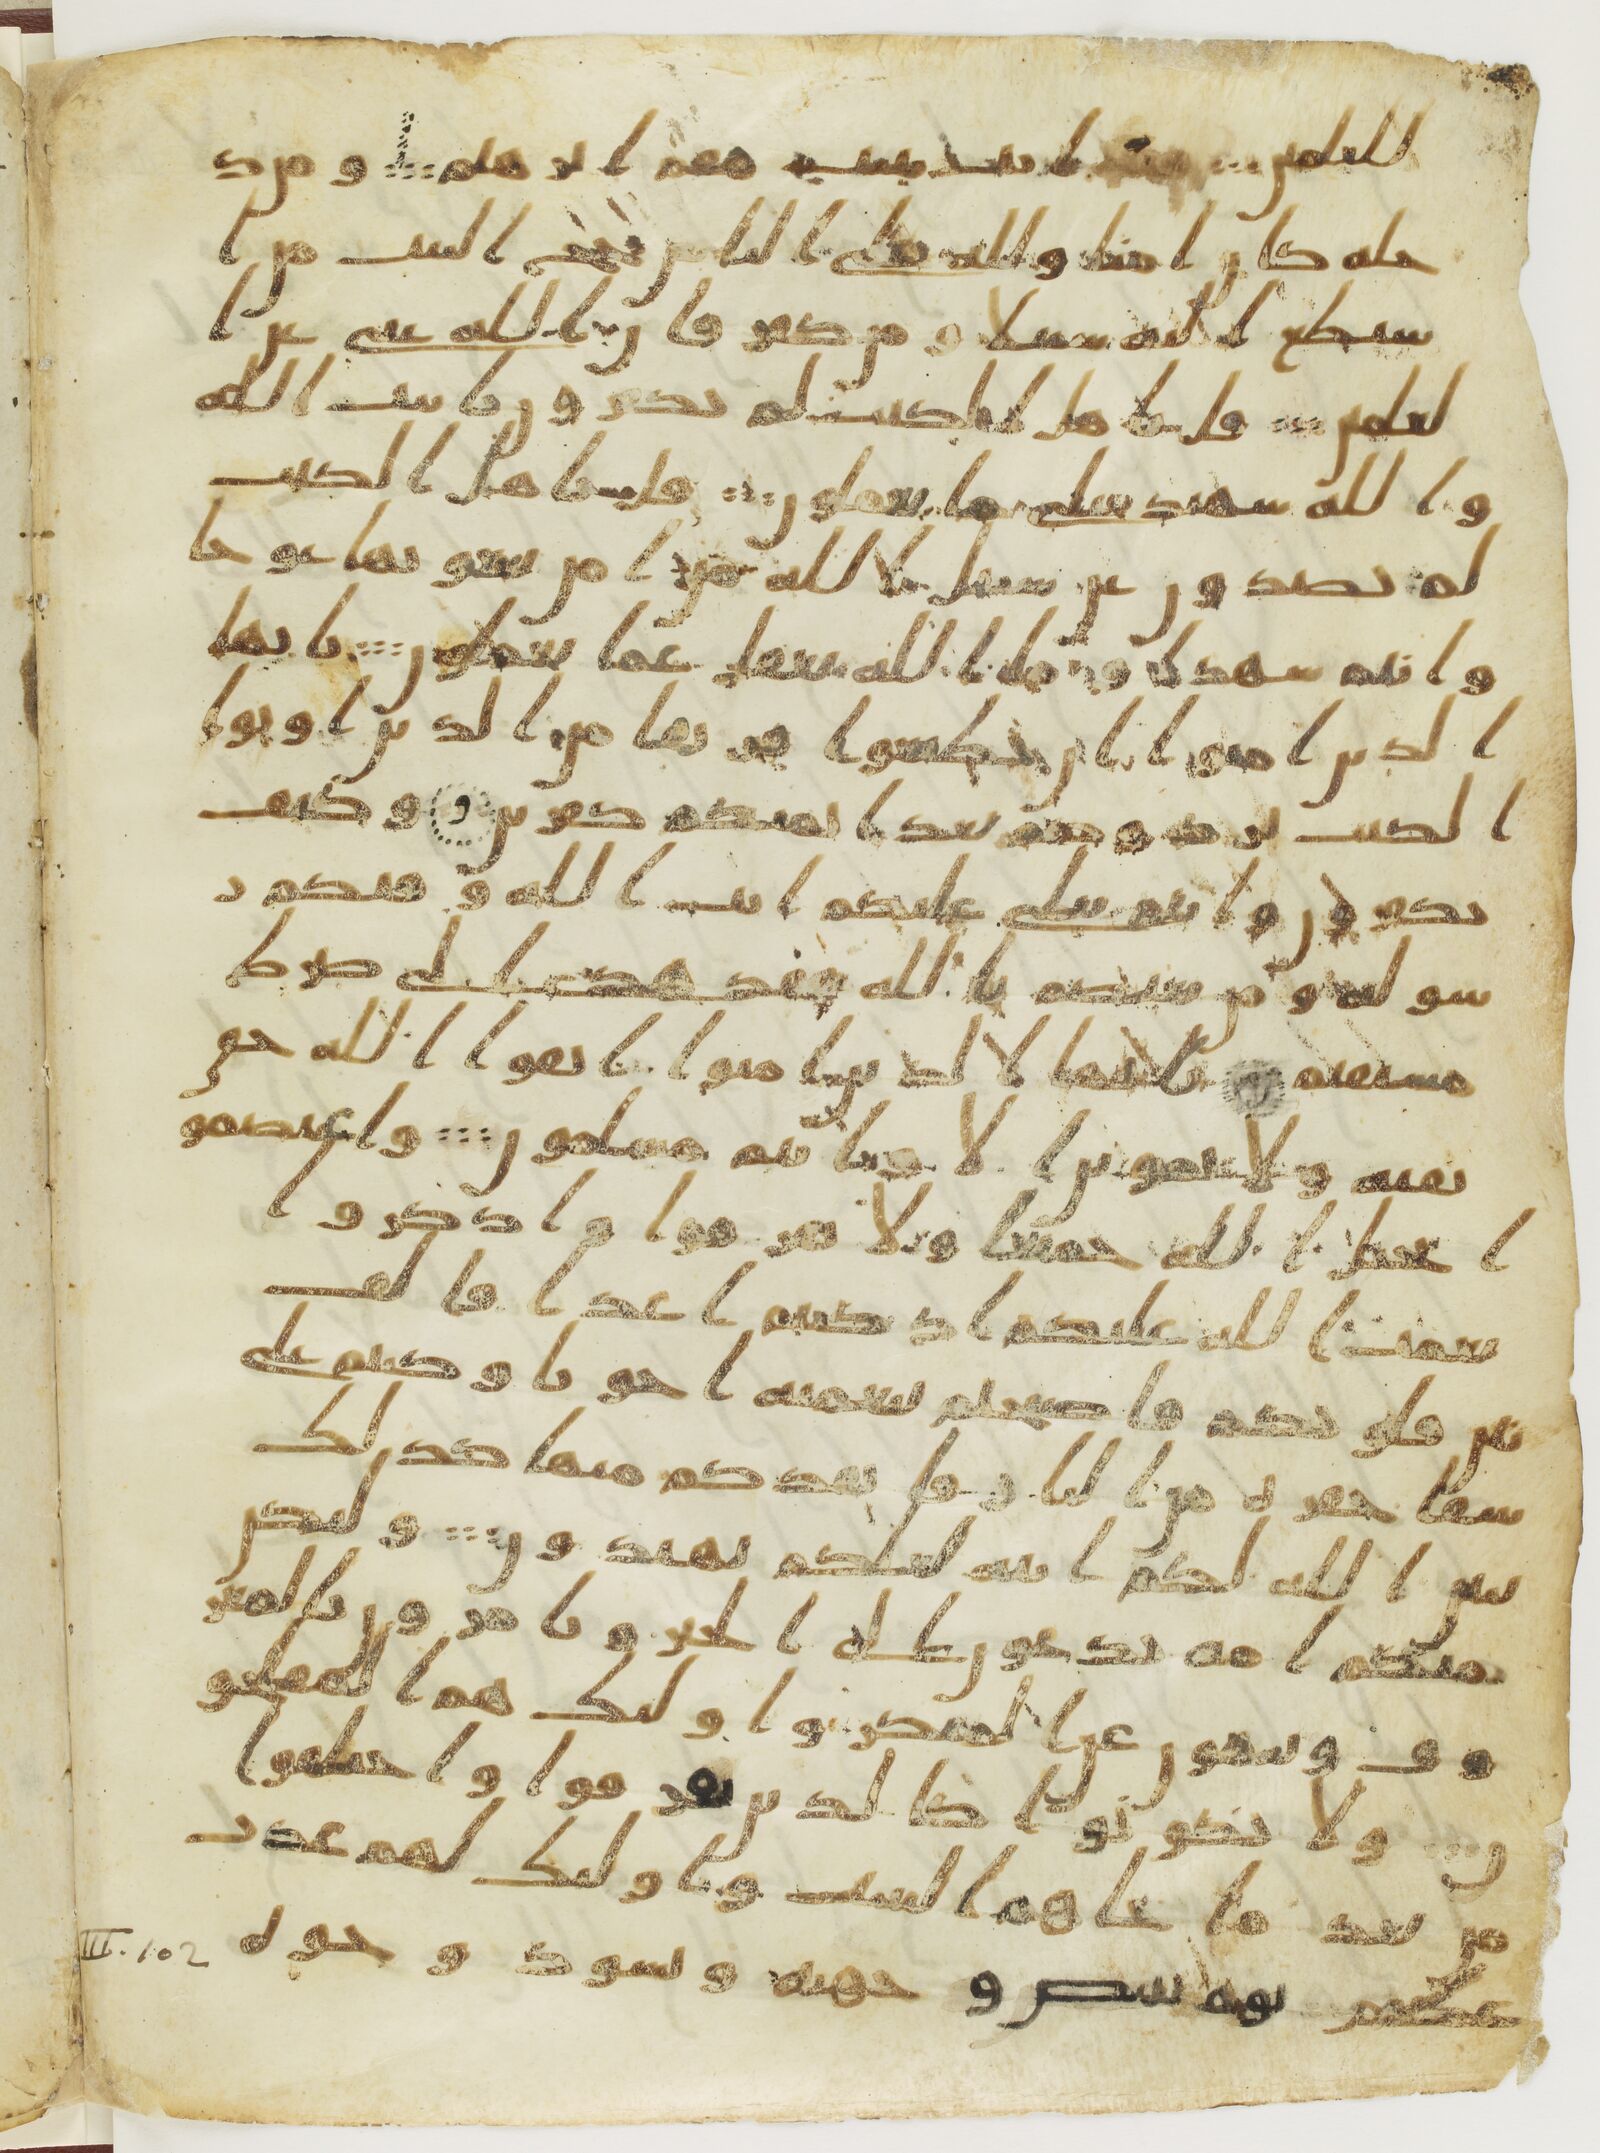 للعلمين فيه ايت بينت مقم ابرهيم ومن د
خله كان امنا ولله على الناس حج البيت من ا
ستطع اليه سبيلا ومن كفر فان الله غني عن ا
لعلمين قل ياهل الكتب لم تكفرون بايت الله
والله شهيد على ما تعملون قل ياهل الكتب
لم تصدون عن سبيل الله من امن تبغونها عوجا
وانتم شهدا وما الله بغفل عما تعملون يايها
الذين امنوا ان تطيعوا فريقا من الذين اوتوا
الكتب يردوكم بعد ايمنكم كفرين وكيف
تكفرون وانتم تتلى عليكم ايت الله وفيكم ر
سوله ومن يعتصم بالله فقد هدى الى صرط
مستقيم يايها الذين امنوا اتقوا الله حق
تقته ولا تموتن الا وانتم مسلمون واعتصمو
ا بحبل الله جميعا ولا تفرقوا واذكروا
نعمت الله عليكم اذ كنتم اعدا فالف
بين قلوبكم فاصبحتم بنعمته اخونا وكنتم على
شفا حفره من النار فانقذكم منها كذلك
يبين الله لكم ايته لعلكم تهتدون ولتكن
منكم امه يدعون الى الخير ويامرون بالمعر
وف وينهون عن المنكر واولئك هم المفلحو
ن ولا تكونوا كالذين تفرقوا واختلفوا
من بعد ما جاهم البينت واولئك لهم عذب
عظيم يوم تبيض وجوه وتسود وجوه
III.102